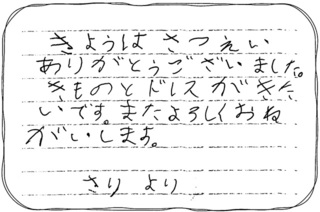 きょうは さつえい
ありがとうございました。
きものとドレスがきた
いです。またよろしくおね
がいします。
さり より